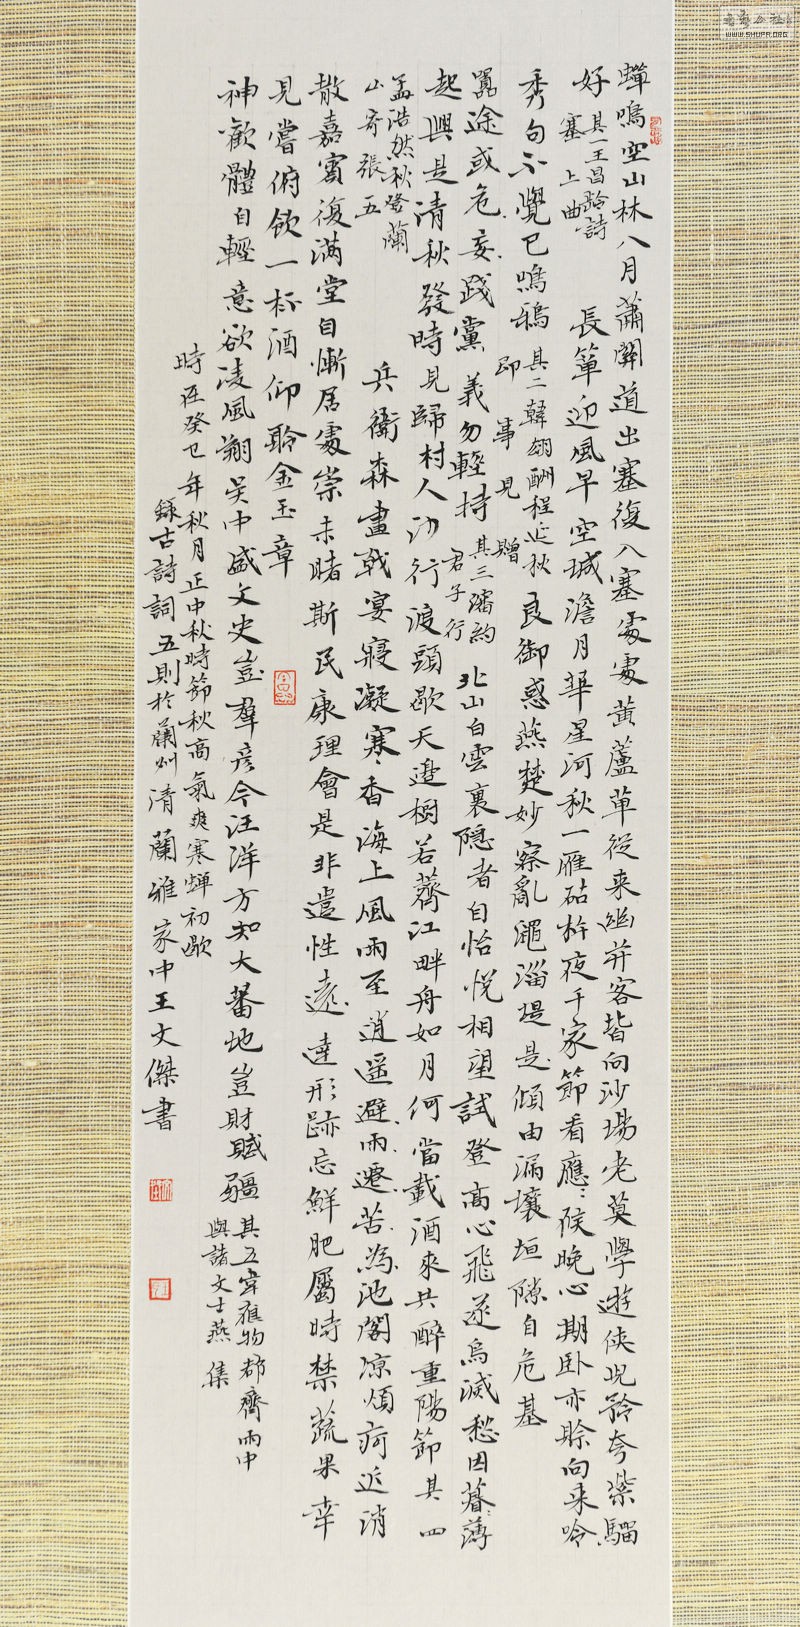 蟬鳴空山林八月蕭關道出塞復入塞處處黃蘆草從来幽并客皆向沙場老莫學遊俠児矜夸紫騮
好
其一王昌齡詩
塞上曲
長簟迎風早空城澹月華星河秋一雁砧杵夜千家節看應候晚心期卧亦賒向来吟
秀句不覺已鳴鴉
其二韓翃酬程延秋
即事見贈
良御惑燕楚妙察亂澠淄堤是傾由漏壤垣隙自危基
囂途或危妄踐黨義勿輕持
其三潘約
君子行
北山白雲裏隱者自怡悅相望試登高心飛逐鳥滅愁因暮薄
起興是清秋發時見歸村人沙行渡頭歇天邊樹若薺江畔舟如月何當載酒來共醉重陽節其四
孟浩然秋登蘭
山寄張五
兵衛森畫戟宴寢凝寒香海上風雨至逍遥避雨遷苦為池閣凉煩疴近消
散嘉賓復滿堂自慚居處崇未睹斯民康理會是非遣性遠達形跡忘鮮肥屬時禁蔬果幸
見嘗俯飲一杯酒仰聆金玉章
神歡體自輕意欲凌風翔吳中盛文史豈羣彦今汪洋方知大蕃地豈財賦疆
其五韋應物郡齋雨中
與諸文士燕集
時在癸巳年秋月正中秋時節秋高氣爽寒蟬初歇
錄古詩詞五則於蘭州清蘭雅家中王文傑書
WWW.SHUPR.ORG